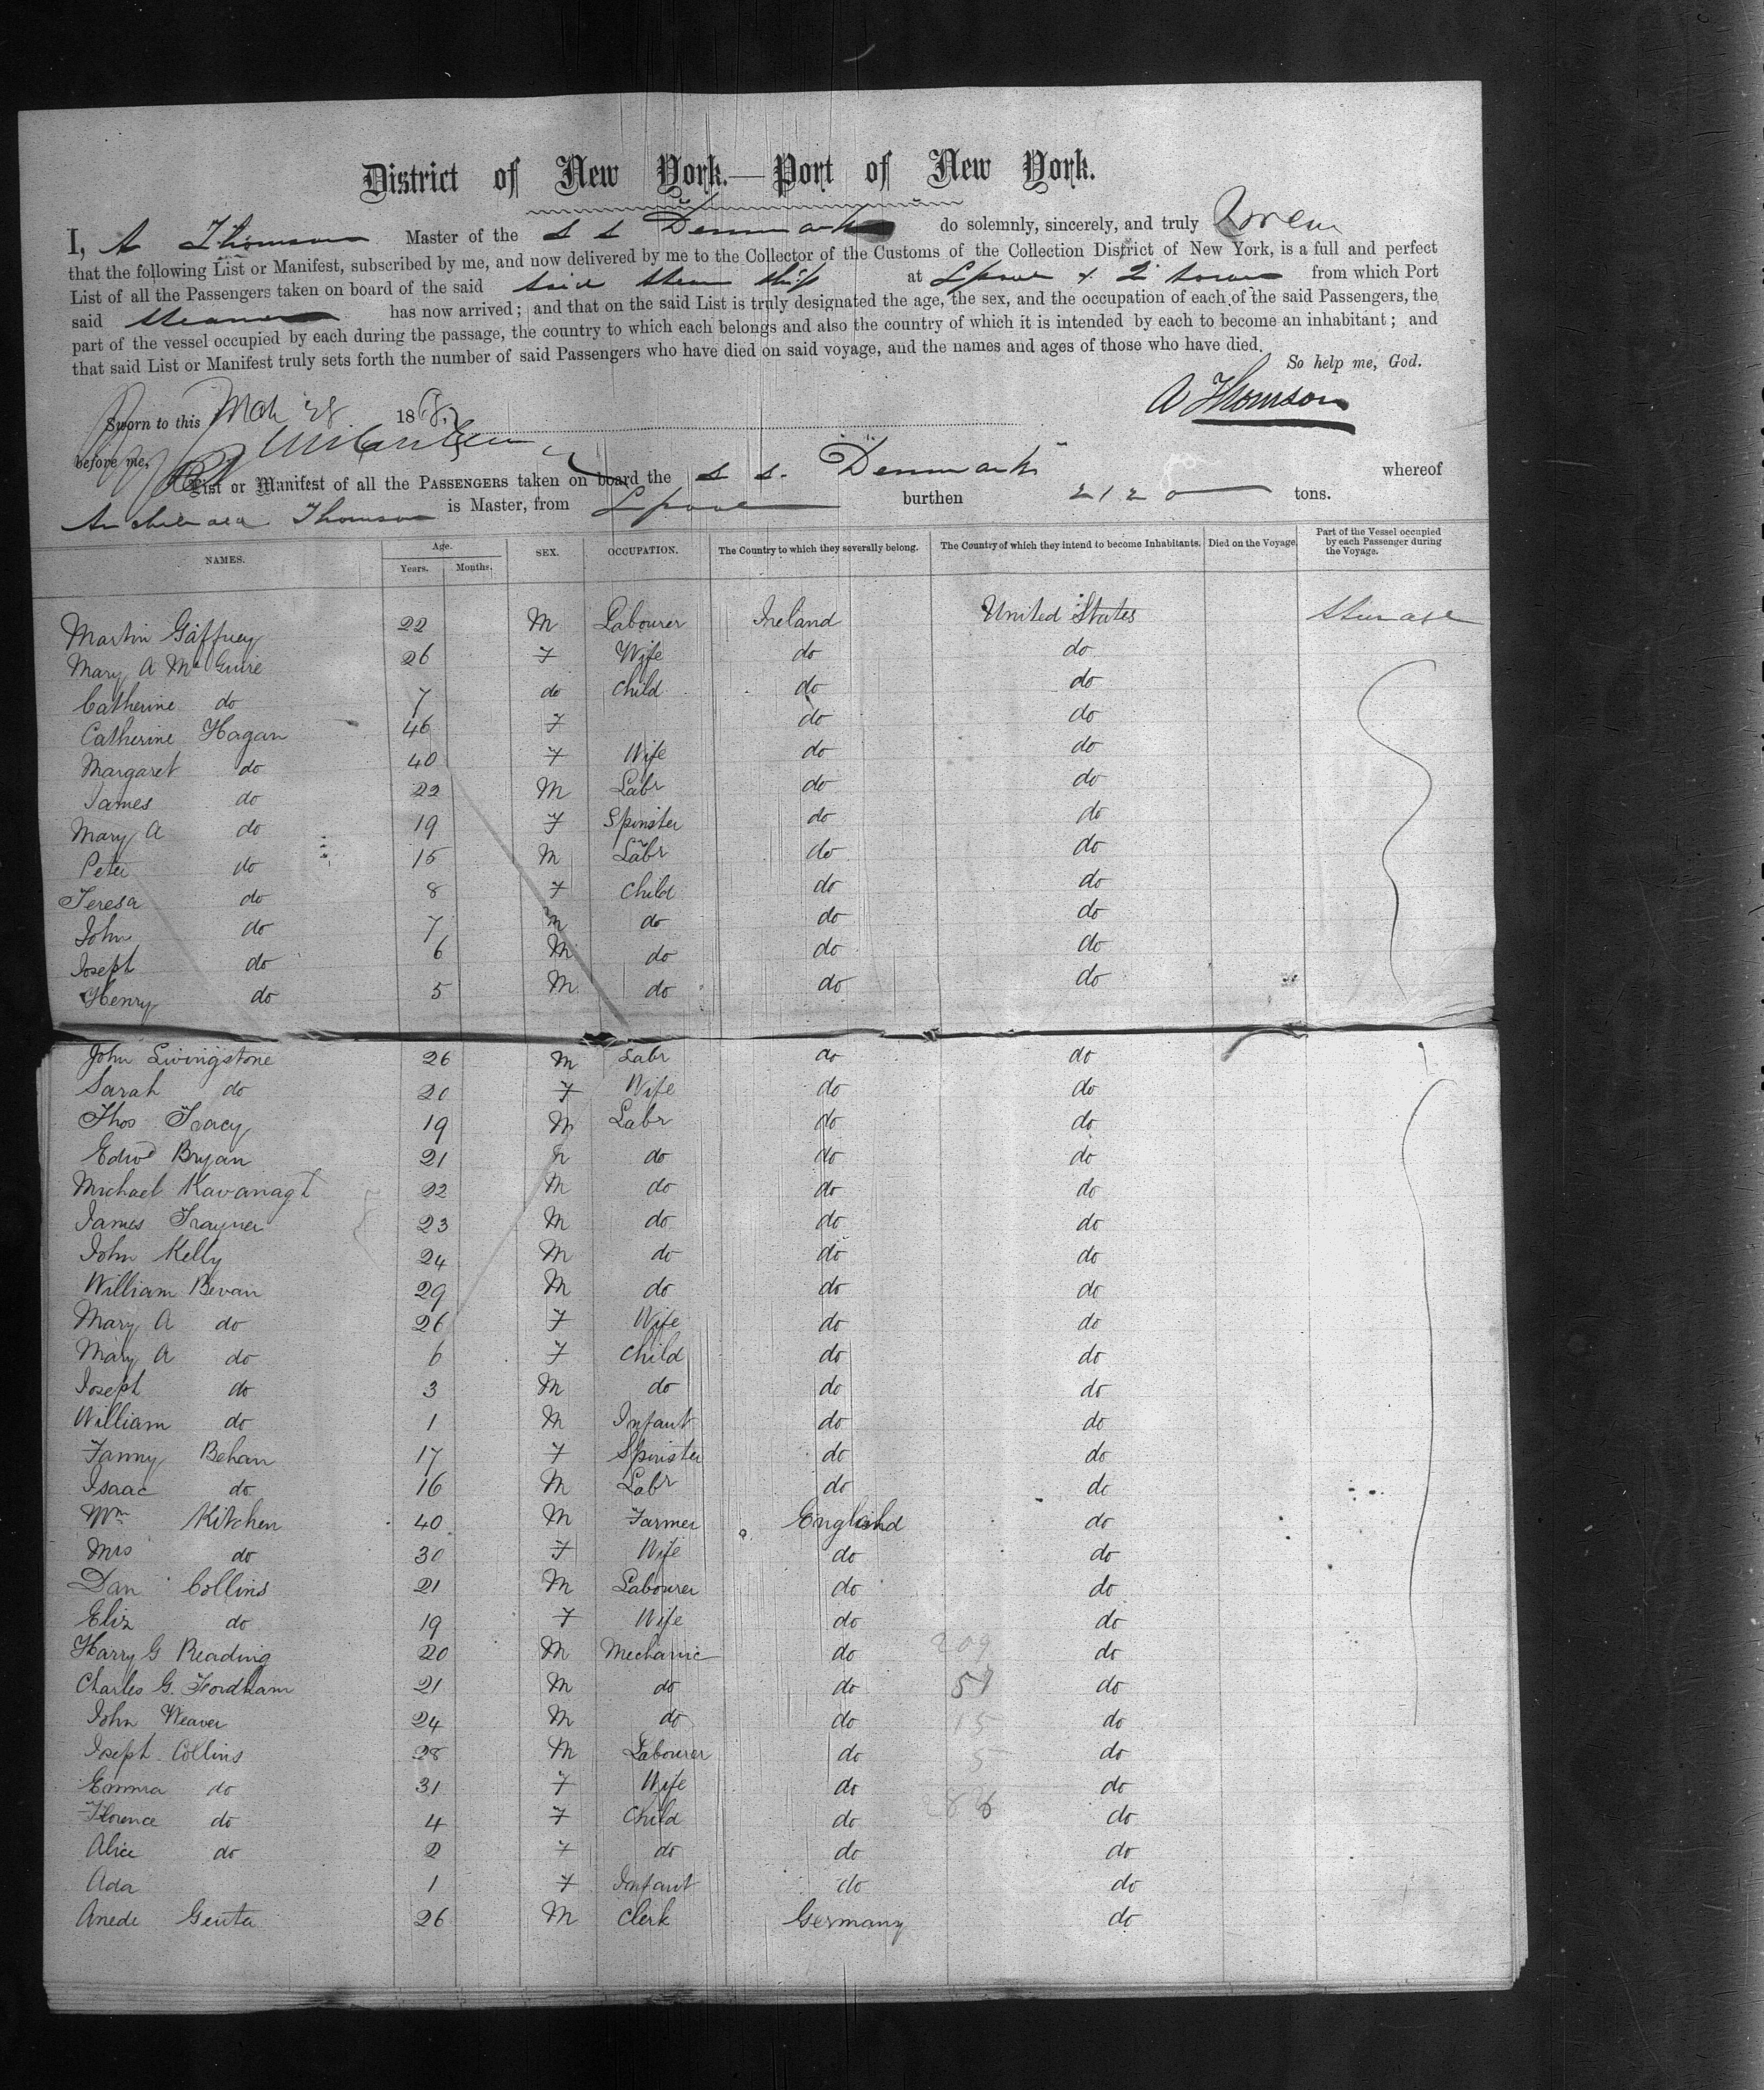 District of New York.—Port of New York.
I, A Thomson Master of the S S Denmark do solemnly, sincerely, and truly Swear
that the following List or Manifest, subscribed by me, and now delivered by me to the Collector of the Customs of the Collection District of New York, is a full and perfect
List of all the Passengers taken on board of the said said steam ship at Lpool & Q town from which Port
said steamer has now arrived; and that on the said List is truly designated the age, the sex, and the occupation of each of the said Passengers, the
part of the vessel occupied by each during the passage, the country to which each belongs and also the country of which it is intended by each to become an inhabitant; and
that said List or Manifest truly sets forth the number of said Passengers who have died on said voyage, and the names and ages of those who have died.
So help me, God.
Sworn to this Mch 28 1868 A Thomson
before me,
List or Manifest of all the PASSENGERS taken on board the S S. Denmark whereof
Thomson is Master, from Lpool burthen 2120 tons.
NAMES. Age. Years. Months. SEX. OCCUPATION. The Country to which they severally belong. The Country of which they intend to become Inhabitants. Died on the Voyage. Part of the Vessel occupied by each Passenger during the Voyage.
Martin Gaffney 22 M Labourer Ireland United States Steerage
Mary A McGuire 26 F Wife do do
Catherine do 7 do Child do do
Catherine Hagan 46 F do do
Margaret do 40 F Wife do do
James do 22 M Labr do do
Mary A do 19 F Spinster do do
Peter do 15 M Labr do do
Teresa do 8 F Child do do
John do 7 M do do do
Joseph do 6 M do do do
Henry do 5 M do do do
John Livingstone 26 M Labr do do
Sarah do 20 F Wife do do
Thos Tracy 19 M Labr do do
Edwd Bryan 21 M do do do
Michael Kavanagh 22 M do do do
James Traynor 23 M do do do
John Kelly 24 M do do do
William Bevan 29 M do do do
Mary A do 26 F Wife do do
Mary A do 6 F Child do do
Joseph do 3 M do do do
William do 1 M Infant do do
Fanny Behan 17 F Spinster do do
Isaac do 16 M Labr do do
Wm Kitchen 40 M Farmer England do
Mrs do 30 F Wife do do
Dan Collins 21 M Labourer do do
Eliz do 19 F Wife do do
Harry G Reading 20 M Mechanic do 209 do
Charles G. Fordham 21 M do do 57 do
John Weaver 24 M do do 15 do
Joseph Collins 28 M Labourer do 5 do
Emma do 31 F Wife do do
Florence do 4 F Child do 286 do
Alice do 2 F do do do
Ada 1 F Infant do do
Anede Genta 26 M Clerk Germany do